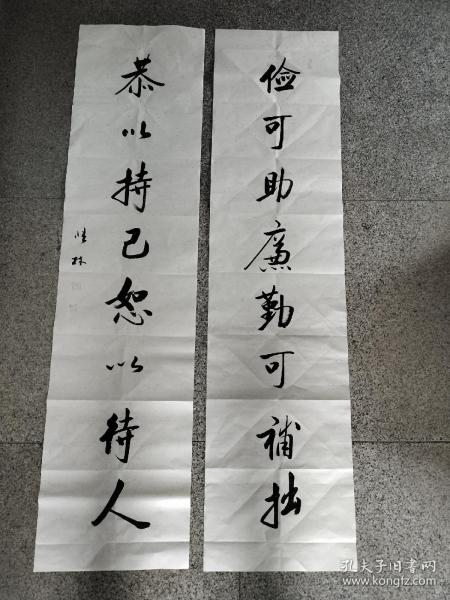 俭可助廉勤可补拙
恭以持己恕以待人
孔夫子旧书网
www.kongfz.com